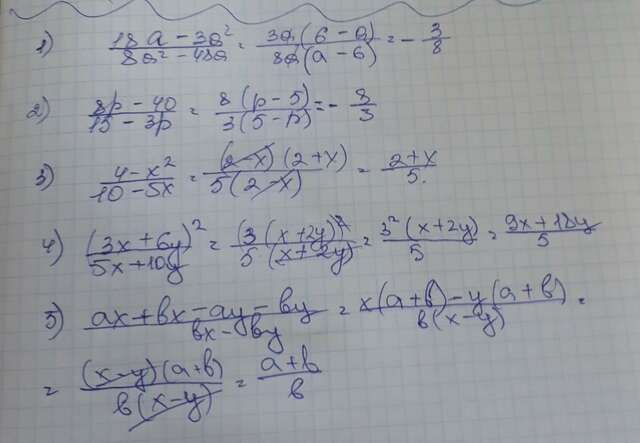 1) (18a - 3a²)/(8a² - 48a) = 3a(6 - a)/8a(a - 6) = - 3/8
2) (8p - 40)/(15 - 3p) = 8(p - 5)/3(5 - p) = - 8/3
3) (4 - x²)/(10 - 5x) = (2 - x)(2 + x)/5(2 - x) = (2 + x)/5.
4) (3x + 6y)²/(5x + 10y) = (3(x + 2y)²/5(x + 2y) = 3²(x + 2y)/5 = (9x + 18y)/5
5) (ax + bx - ay - by)/(bx - by) = (x(a + b) - y(a + b))/b(x - y) =
= (x - y)(a + b)/b(x - y) = (a + b)/b